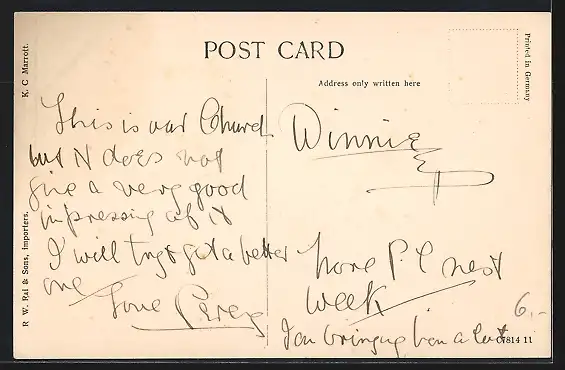 POST CARD
Address only written here
Printed in Germany
K. C. Marrott.
R. W. Pal & Sons, Importers.
This is our Church
but it does not
give a very good
impressing of it
I will try & get a better
one Love Percy
Winnie
more P C next
week
I am bringing a lot
6.-
07814 11